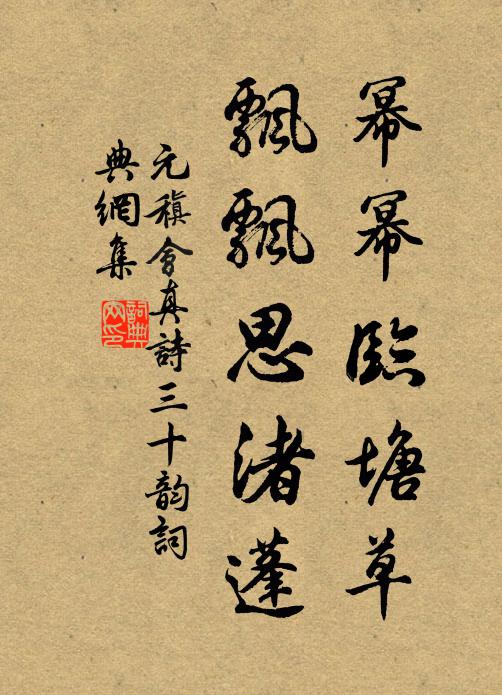 幂幂臨塘草
飄飄思渚蓬
元稹會真詩三十韵詞
典網集
詞典
网印